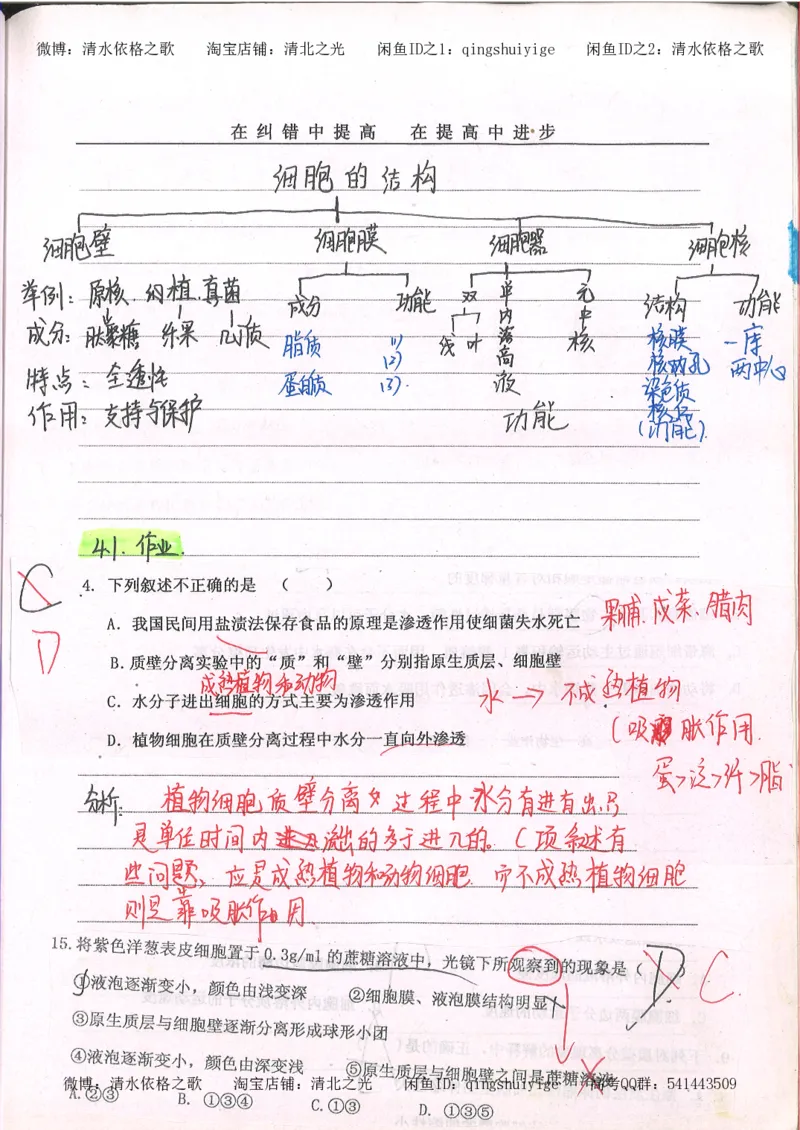 微博：清水依格之歌 淘宝店铺：清北之光 闲鱼ID之1：qingshuiyige 闲鱼ID之2：清水依格之歌
在纠错中提高 在提高中进步
细胞的结构
细胞壁 细胞膜 细胞器 细胞核
举例：原核.细.植.真菌
成分 功能 双 单 无 结构 功能
成分：肽聚糖 纤果 几丁质
脂质 (1) 线 叶 内 溶 高 液 中 核 核膜 一库
(2) 核孔 两中心
特点：全透性 蛋白质 (3). 染色质
作用：支持与保护 功能 核仁
(功能).
41.作业.
C
4. 下列叙述不正确的是 （ ）
D
A. 我国民间用盐渍法保存食品的原理是渗透作用使细菌失水死亡 果脯.咸菜.腊肉
B. 质壁分离实验中的“质”和“壁”分别指原生质层、细胞壁
成熟植物和动物
C. 水分子进出细胞的方式主要为渗透作用 水→不成熟植物
(吸胀作用.
D. 植物细胞在质壁分离过程中水分一直向外渗透
蛋>淀>纤>脂
分析: 植物细胞质壁分离的过程中水分有进有出,只
是单位时间内流出的多于进入的。C项叙述有
些问题、应是成熟植物和动物细胞.而不成熟植物细胞
则是靠吸胀作用.
15. 将紫色洋葱表皮细胞置于 0.3g/ml 的蔗糖溶液中，光镜下所观察到的现象是（ D C
①液泡逐渐变小，颜色由浅变深 ②细胞膜、液泡膜结构明显
③原生质层与细胞壁逐渐分离形成球形小团
④液泡逐渐变小，颜色由深变浅 ⑤原生质层与细胞壁之间是蔗糖溶液
微博：清水依格之歌 淘宝店铺：清北之光 闲鱼ID：qingshuiyige 备考QQ群：541443509
A.②③ B. ①③④ C.①③ D. ①③⑤